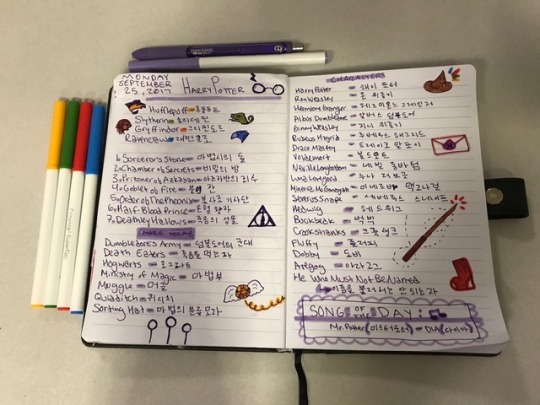 MONDAY
SEPTEMBER
25, 2017
HARRY POTTER
Hufflepuff =
Slytherin =
Gryffindor = 그리핀도르
Ravenclaw =
1. Sorcerors Stone = 마법사의 돌
2. Chamber of Secrets = 비밀의 방
3. Prizoner of Azkaban = 아즈카반의 죄수
4. Goblet of Fire = 불의 잔
5. Order of The Pheonix = 불사조 기사단
6. Half-Blood Prince = 혼혈 왕자
7. Deathly Hallows = 죽음의 성물
MORE VOCAB
Dumbledore's Army = 덤블도어의 군대
Death Eaters = 죽음을 먹는자
Hogwarts = 호그와트
Ministry of Magic = 마법부
Muggle = 머글
Quidditch = 퀴디치
Sorting Hat = 마법의 분류 모자
CHARACTERS
Harry Potter = 해리 포터
Ron Weasley = 론 위즐리
Hermione Granger = 헤르미온느 그레인저
Albus Dumbledore = 알버스 덤블도어
Ginny Weasley = 지니 위즐리
Rubeus Hagrid = 루베우스 해그리드
Draco Malfoy = 드레이코 말포이
Voldemort = 볼드모트
Neville Longbottom = 네빌 롱바텀
Luna Lovegood = 루나 러브굿
Minerva McGonagall = 미네르바 맥고나걸
Severus Snape = 세베루스 스네이프
Hedwig = 헤드위그
Buckbeak = 벅빅
Crookshanks = 크룩섕크
Fluffy = 플러피
Dobby = 도비
Aragog = 아라고그
He Who Must Not Be Named
이름을 불러서는 안 되는 자
SONG OF THE DAY:
Mr. Potter (미스터 포터) = DIA (다이아)